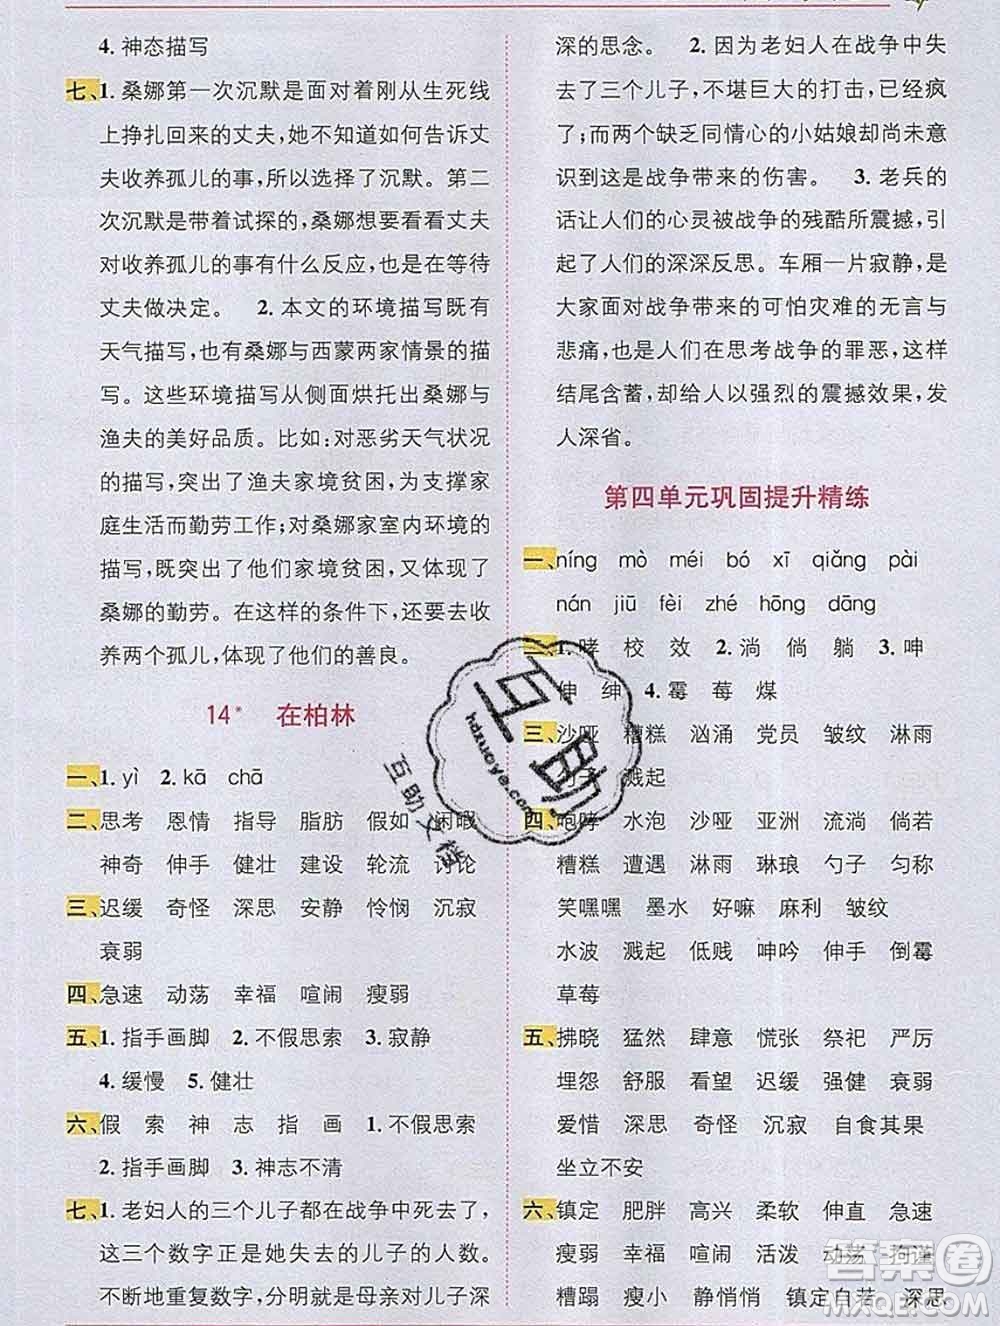 4. 神态描写
七、1. 桑娜第一次沉默是面对着刚从生死线
上挣扎回来的丈夫,她不知如何告诉丈
夫收养孤儿的事,所以选择了沉默。第二
次沉默是带着试探的,桑娜想要看看丈夫
对收养孤儿的事有什么反应,也是在等待
丈夫做决定。 2. 本文的环境描写既有
天气描写,也有桑娜与西蒙两家情景的描
写。这些环境描写从侧面烘托出桑娜与
渔夫的美好品质。比如:对恶劣天气状况
的描写,突出了渔夫家境贫困,为支撑家
庭生活而勤劳工作;对桑娜家室内环境的
描写,既突出了他们家境贫困,又体现了
桑娜的勤劳。在这样的条件下,还要去收
养两个孤儿,体现了他们的善良。
14* 在柏林
一、1. yì 2. kā chā
二、思考 恩情 指导 脂肪 假如 闲暇
神奇 伸手 健壮 建设 轮流 讨论
三、迟缓 奇怪 深思 安静 怜悯 沉寂
衰弱
四、急速 动荡 幸福 喧闹 瘦弱
五、1. 指手画脚 2. 不假思索 3. 寂静
4. 缓慢 5. 健壮
六、假 索 神 志 指 画 1. 不假思索
2. 指手画脚 3. 神志不清
七、1. 老妇人的三个儿子都在战争中死去了,
这三个数字正是她失去的儿子的人数。
不断地重复数字,分明就是母亲对儿子深
深的思念。 2. 因为老妇人在战争中失
去了三个儿子,不堪巨大的打击,已经疯
了;而两个缺乏同情心的小姑娘却尚未意
识到这是战争带来的伤害。 3. 老兵的
话让人们的心灵被战争的残酷所震撼,引
起了人们的深深反思。车厢一片寂静,是
大家面对战争带来的可怕灾难的无言与
悲痛,也是人们在思考战争的罪恶,这样
结尾含蓄,却给人以强烈的震撼效果,发
人深省。
第四单元巩固提升精练
一、níng mò méi bó xī qiǎng pài
nán jiū fèi zhé hōng dāng
二、1. 哮 校 效 2. 淌 倘 躺 3. 呻
伸 绅 4. 霉 莓 煤
三、沙哑 糟糕 汹涌 党员 皱纹 淋雨
勺子 溅起
四、咆哮 水泡 沙哑 亚洲 流淌 倘若
糟糕 遭遇 淋雨 琳琅 勺子 匀称
笑嘿嘿 墨水 好嘛 麻利 皱纹
水波 溅起 低贱 呻吟 伸手 倒霉
草莓
五、拂晓 猛然 肆意 慌张 祭祀 严厉
埋怨 舒服 看望 迟缓 强健 衰弱
爱惜 深思 奇怪 沉寂 自食其果
坐立不安
六、镇定 肥胖 高兴 柔软 伸直 急速
瘦弱 幸福 喧闹 活泼 动荡
糟蹋 瘦小 静悄悄 镇定自若 深思
互助
huzuoye.com
互助文档
答案卷
MXQE.COM